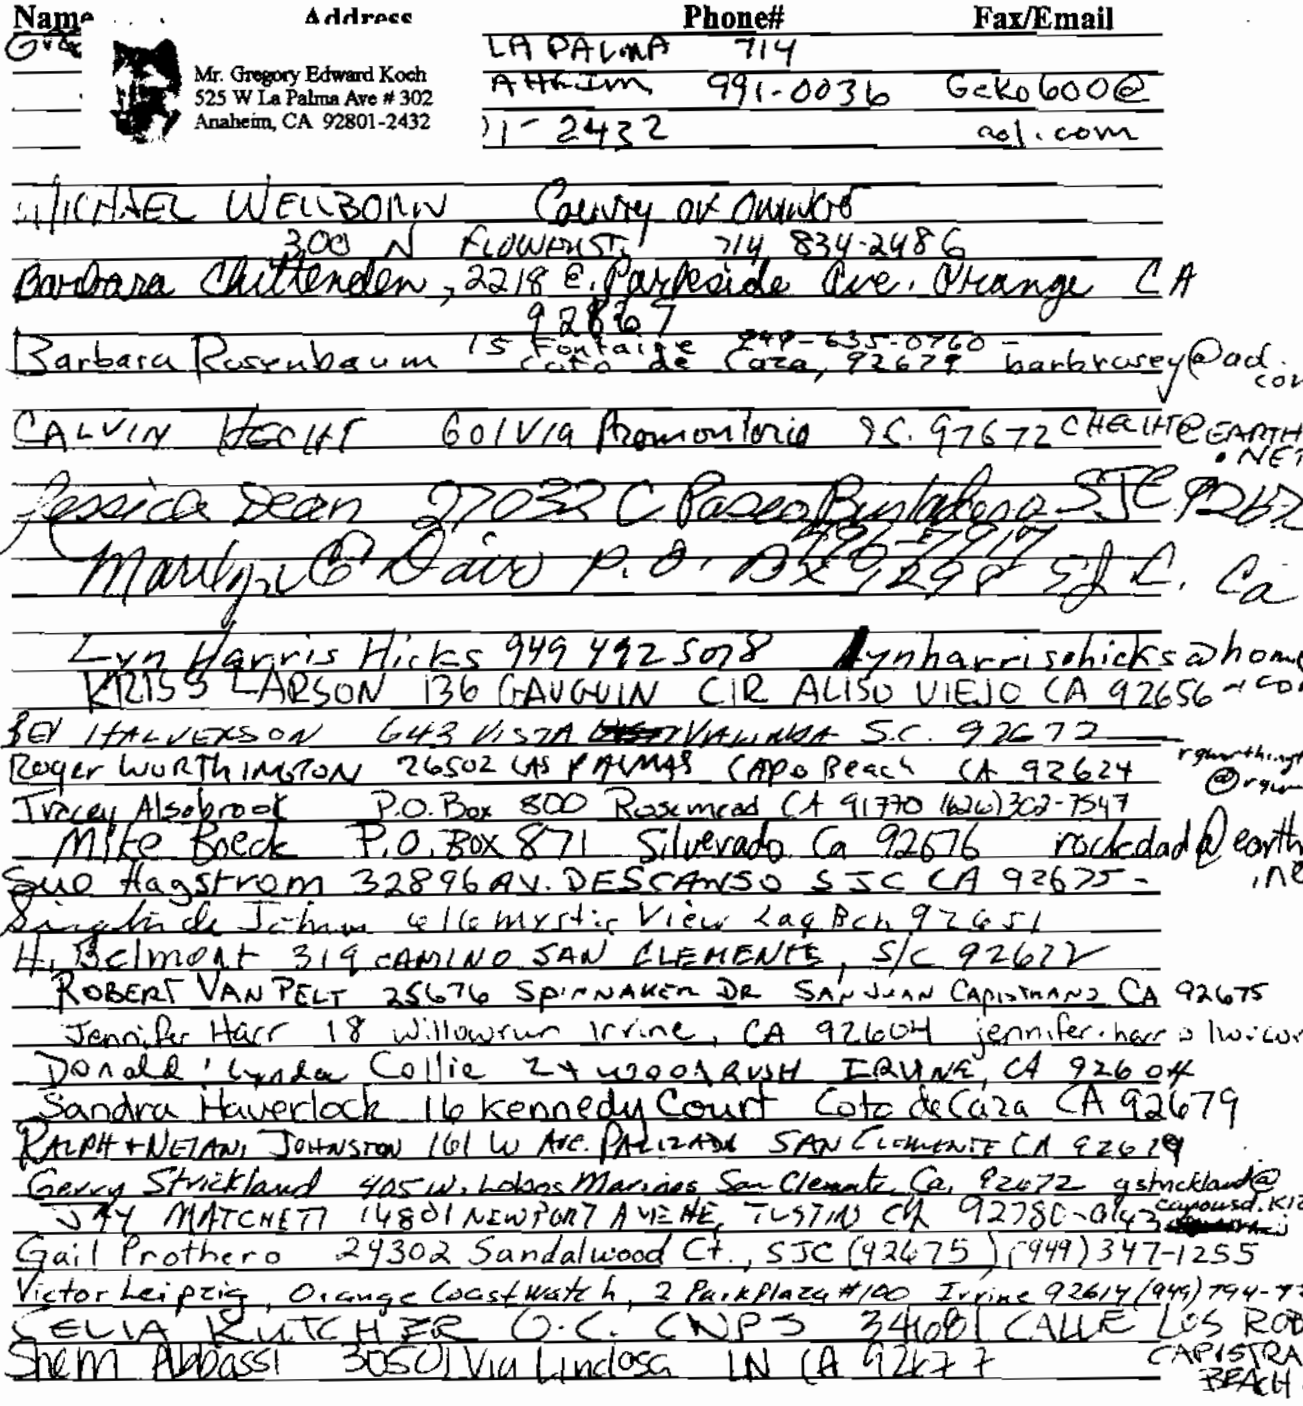 Name Address Phone# Fax/Email
LA PALMA 714
Mr. Gregory Edward Koch
525 W La Palma Ave # 302 991-0036 Geko600@
Anaheim, CA 92801-2432
1-2432 aol.com
MICHAEL WELLBORN County of
300 N Flower St. 714 834-2486
Barbara Chittenden, 2218 E. Parkside Ave. Orange CA
92867
Barbara Rosenbaum 15 Fontaire 949-635-0760 -
Coto de Caza, 92679 barbrosey@aol.
com
CALVIN HECHT 601 Via Promontorio S.C. 92672 CHECHT@EARTH
.NET
Jessica Dean 27032 C Paseo Burladero SJC 9267
496-7917
Marilyn P.O. Bx 9298 SJC. Ca
Lyn Harris Hicks 949 492 5078 lynharrishicks@home
KRISS LARSON 136 GAUGUIN CIR ALISO VIEJO CA 92656
BEV HALVERSON 643 VISTA VALINDA S.C. 92672
Roger WORTHINGTON 26502 LAS PALMAS CAPO Beach CA 92624 rgworthingt
@rgw
Tracey Alsobrook P.O. Box 800 Rosemead CA 91770 (626)302-7547
Mike Boeck P.O. Box 871 Silverado Ca 92676 rockdad@earth
.ne
Sue Hagstrom 32896 AV. DESCANSO SJC CA 92675-
616 Mystic View Lag Bch 92651
H. Belmont 319 CAMINO SAN CLEMENTE, S/C 92672
ROBERT VAN PELT 25676 SPINNAKER DR SAN JUAN CAPISTRANO CA 92675
Jennifer Harr 18 Willowrun Irvine, CA 92604 jennifer.harr
Donald Lynda Collie 24 WOODRUSH IRVINE, CA 92604
Sandra Haverlock 16 Kennedy Court Coto de Caza CA 92679
RALPH + NELANI JOHNSTON 161 W Ave. PALIZADA SAN CLEMENTE CA
Gerry Strickland 405 W. Lobos Marinos San Clemente Ca, 92672 gstrickland@
JAY MATCHETT 14801 NEWPORT AVE, TUSTIN CA 92780
Gail Prothero 29302 Sandalwood Ct., SJC (92675) (949) 347-1255
Victor Leipzig, Orange Coastwatch, 2 Park Plaza #100 Irvine 92614 (949) 794-7
CELIA KUTCHER O.C. CNPS 34681 CALLE LOS ROB
CAPISTRA
BEACH
Shem Abbassi 30501 Via Lindosa LN CA 92677